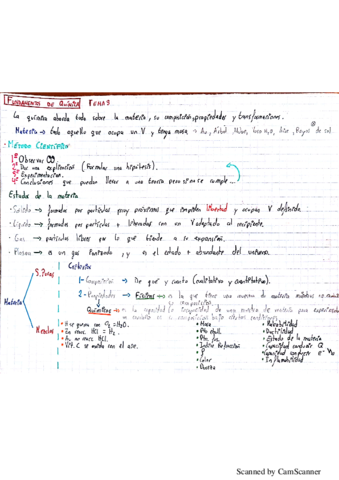 FUNDAMENTOS DE QUÍMICA TEMA 3
La química aborda todo sobre la materia, su composición, propiedades y transformaciones.
Materia → todo aquello que ocupa un V y tenga masa → Au, Árbol, Nube, Aire, Rayos de sol.
MÉTODO CIENTÍFICO
1º Observar
Dar una explicación (Formular una hipótesis).
Experimentación.
Conclusiones que puedan llevar a una teoría pero si no se cumple...
Estados de la materia
· Sólido → formados por partículas muy próximas que impiden libertad y ocupan V definido.
· Líquido → formados por partículas + liberadas con un V adaptado al recipiente.
· Gas → partículas libres por lo que tiende a su expansión.
· Plasma → es un gas ionizado, y es el estado + abundante del universo.
Materia
S. Puras
Mezclas
Criterios
1- Composición → De qué y cuanto (cualitativa y cuantitativa).
2- Propiedades → Físicas → es la que tiene una muestra de materia mientras no cambie su composición.
Químicas → es la capacidad de una muestra de materia para experimentar
un cambio en su composición bajo ciertas condiciones.
· H se quema con O₂ = H₂O.
· Zn reac. HCl = H₂.
· Au no reac. HCl.
· Vit. C se oxida con el aire.
· Masa
· Color
· Dureza
· Maleabilidad
· Ductilidad
· Estado de la materia
· Capacidad conducir Q
· Capacidad conducir e⁻
· Inflamabilidad
Scanned by CamScanner